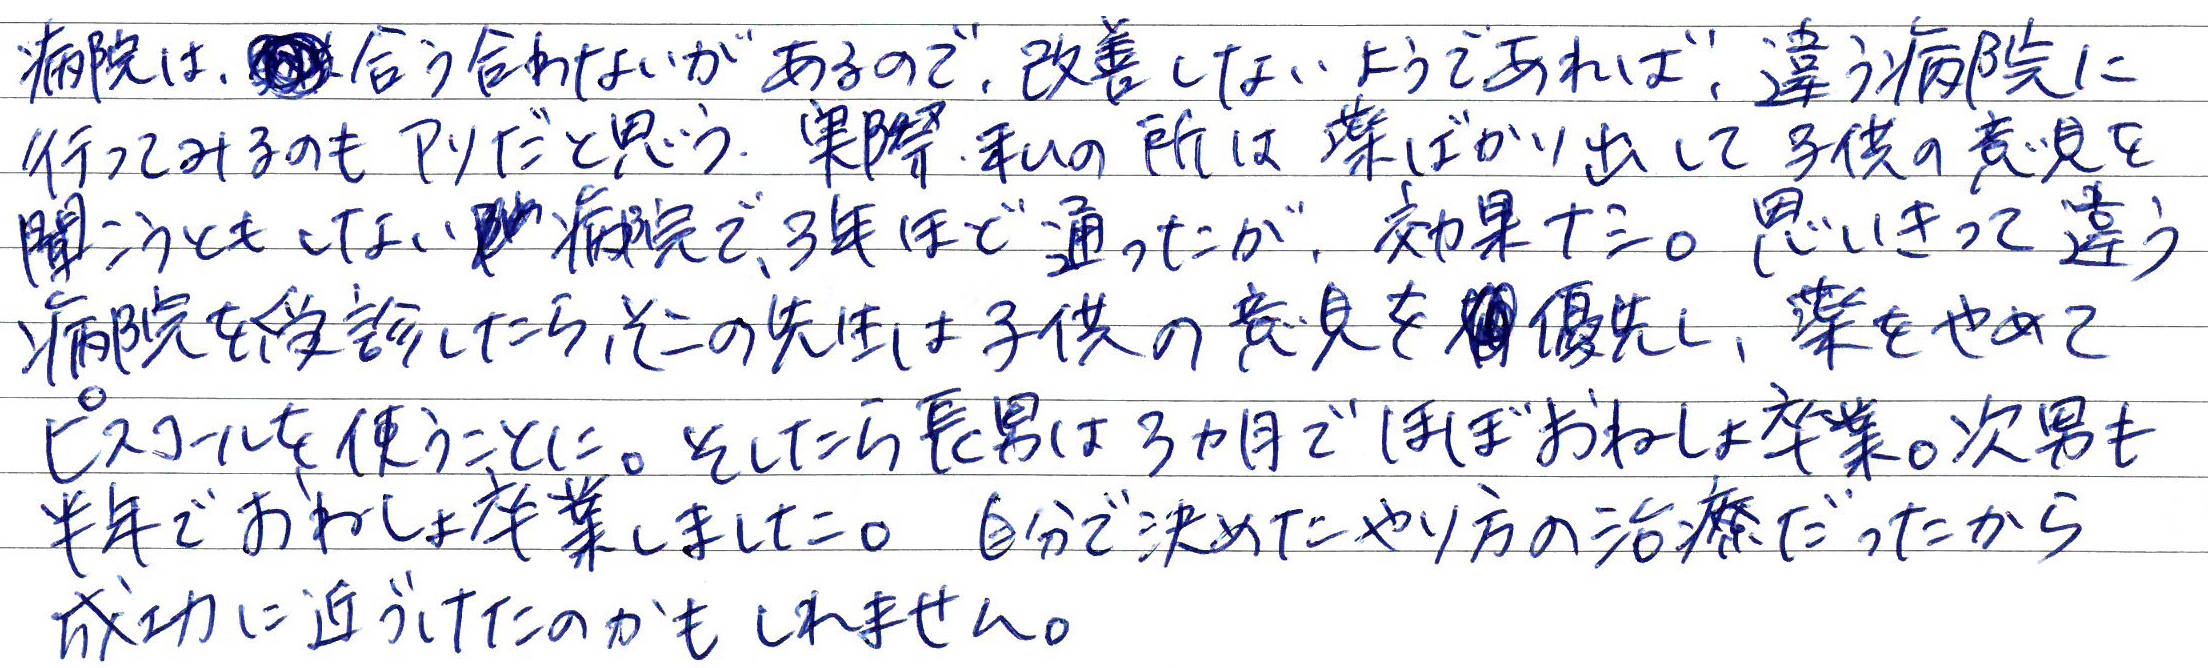 病院は、合う合わないがあるので、改善しないようであれば、違う病院に
行ってみるのもアリだと思う。実際、私の所は薬ばかり出して子供の意見を
聞こうともしない病院で、3年ほど通ったが、効果ナシ。思いきって違う
病院を受診したら、そこの先生は子供の意見を優先し、薬をやめて
ピスコールを使うことに。そしたら長男は3ヵ月でほぼおねしょ卒業。次男も
半年でおねしょ卒業しました。自分で決めたやり方の治療だったから
成功に近づけたのかもしれません。